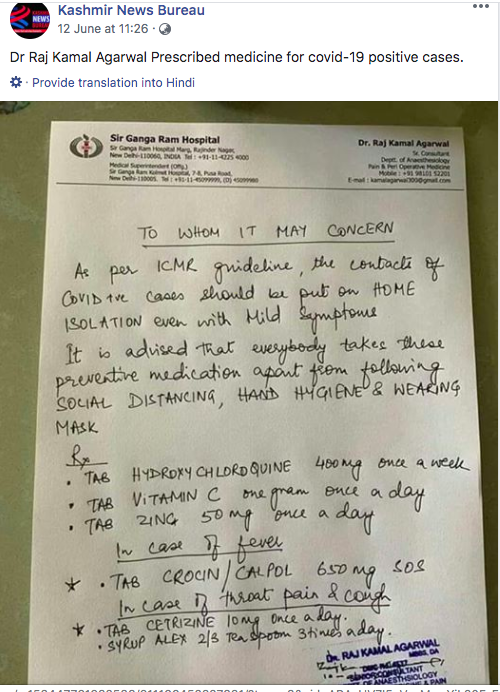 Kashmir News Bureau
12 June at 11:26 ·
Dr Raj Kamal Agarwal Prescribed medicine for covid-19 positive cases.
· Provide translation into Hindi
Sir Ganga Ram Hospital
Sir Ganga Ram Hospital Marg, Rajinder Nagar,
New Delhi-110060, INDIA Tel : +91-11-4225 4000
Medical Superintendent (Offg)
Sir Ganga Ram Kolmet Hospital, 7-B, Pusa Road,
New Delhi-110005. Tel : +91-11-45099999, (D) 45099980
Dr. Raj Kamal Agarwal
Sr. Consultant
Deptt. of Anaesthesiology
Pain & Peri Operative Medicine
Mobile : +91 98101 52201
E-mail : kamalagarwal300@gmail.com
TO WHOM IT MAY CONCERN
As per ICMR guideline, the contacts of
COVID +ve cases should be put on HOME
ISOLATION even with Mild Symptoms
It is advised that everybody takes these
preventive medication apart from following
SOCIAL DISTANCING, HAND HYGIENE & WEARING
MASK
Rx
• TAB HYDROXYCHLOROQUINE 400mg once a week
• TAB VITAMIN C one gram once a day
• TAB ZING 50 mg once a day
In case of fever
* • TAB CROCIN/CALPOL 650 mg SOS
In case of throat pain & cough
* • TAB CETRIZINE 10mg once a day.
• SYRUP ALEX 2/3 tea spoom 3 times a day.
Dr. RAJ KAMAL AGARWAL
SENIOR CONSULTANT
OF ANAESTHESIOLOGY
& PAIN